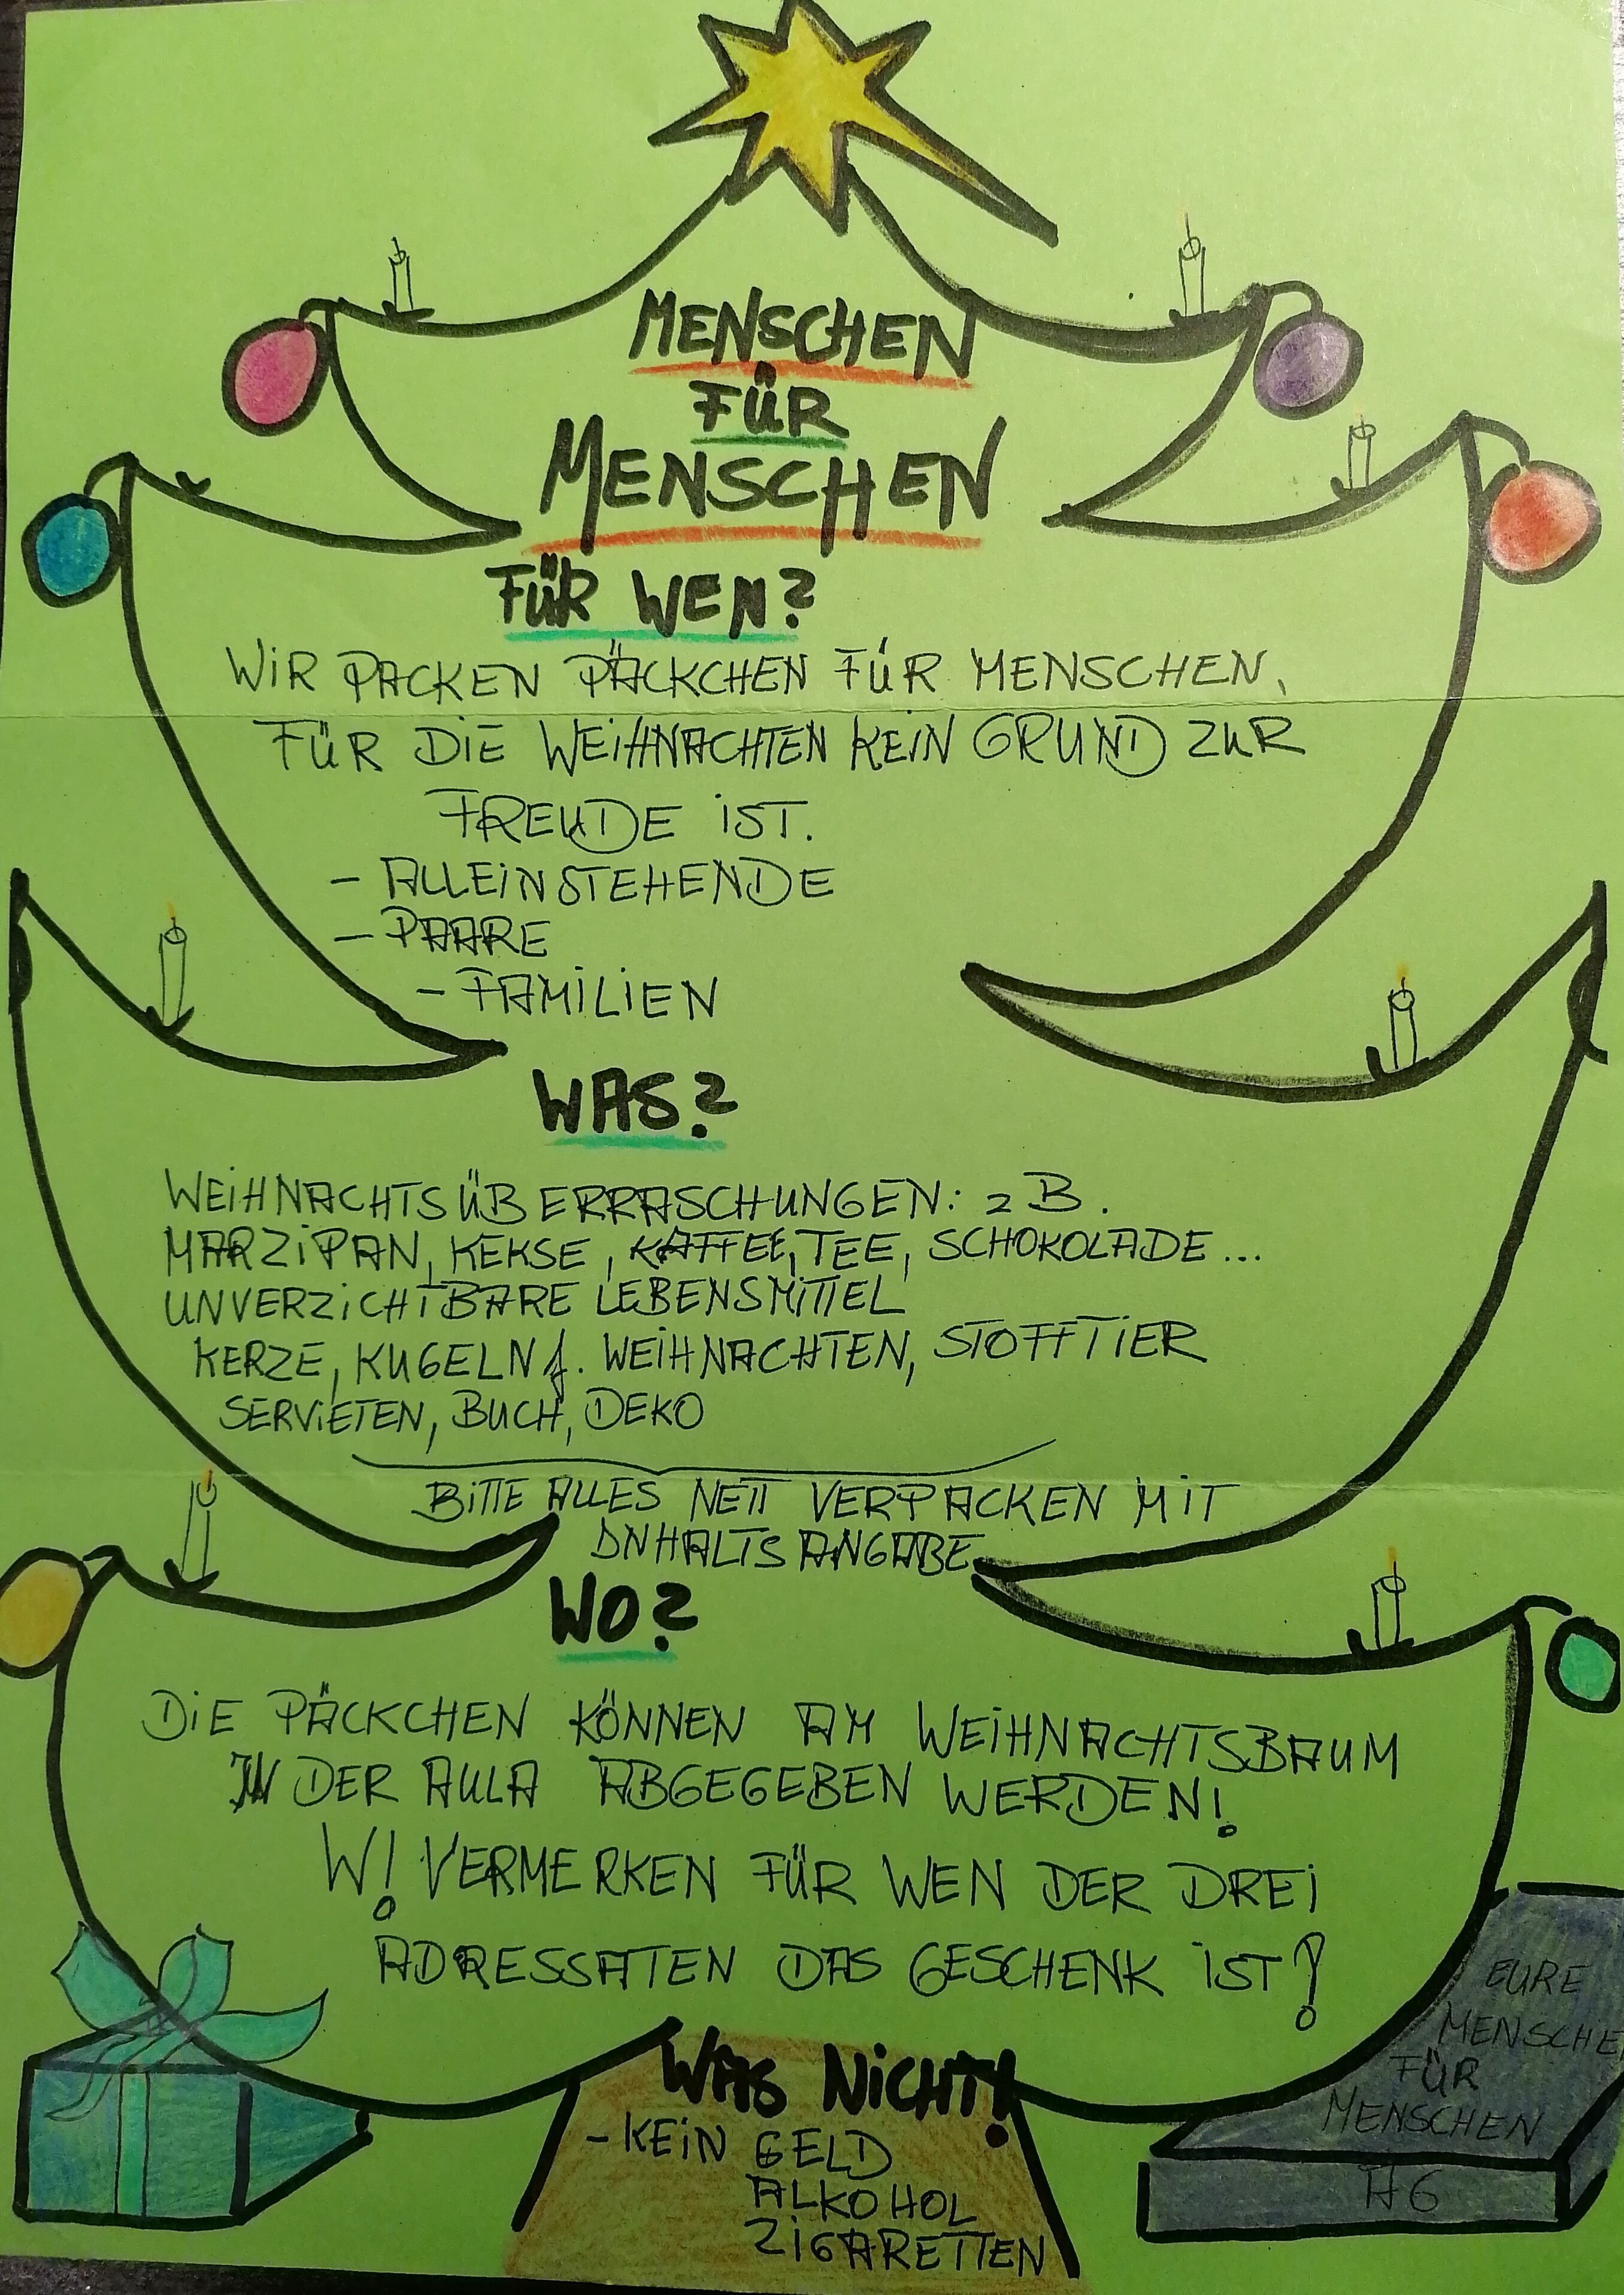 MENSCHEN
FÜR
MENSCHEN
FÜR WEN?
WIR PACKEN PÄCKCHEN FÜR MENSCHEN,
FÜR DIE WEIHNACHTEN KEIN GRUND ZUR
FREUDE IST.
- ALLEINSTEHENDE
- PAARE
- FAMILIEN
WAS?
WEIHNACHTSÜBERRASCHUNGEN: z B.
MARZIPAN, KEKSE, KAFFEE, TEE, SCHOKOLADE...
UNVERZICHTBARE LEBENSMITTEL
KERZE, KUGELN f. WEIHNACHTEN, STOFFTIER
SERVIETEN, BUCH, DEKO
BITTE ALLES NETT VERPACKEN MIT
INHALTSANGABE
WO?
DIE PÄCKCHEN KÖNNEN AM WEIHNACHTSBAUM
IN DER AULA ABGEGEBEN WERDEN!
W! VERMERKEN FÜR WEN DER DREI
ADRESSATEN DAS GESCHENK IST!
EURE
MENSCHE
FÜR
MENSCHEN
AG
WAS NICHT!
- KEIN GELD
ALKOHOL
ZIGARETTEN